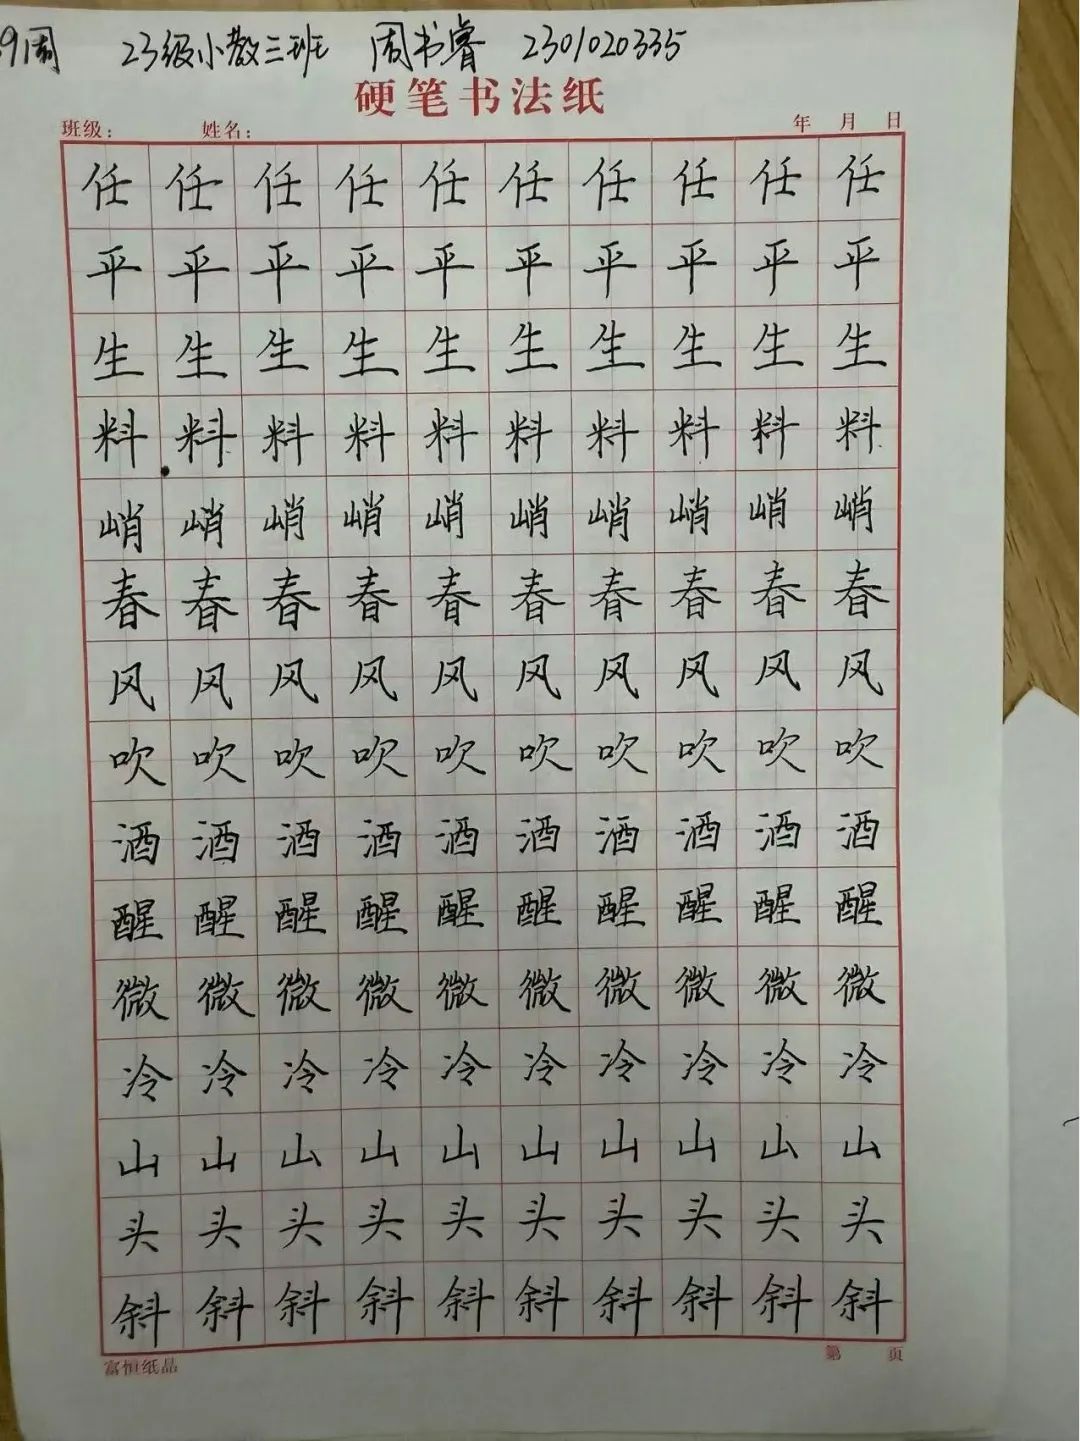 9周 23级小教三班 周书睿 2301020335
硬笔书法纸
班级： 姓名： 年 月 日
任 任 任 任 任 任 任 任 任 任
平 平 平 平 平 平 平 平 平 平
生 生 生 生 生 生 生 生 生 生
料 料 料 料 料 料 料 料 料 料
峭 峭 峭 峭 峭 峭 峭 峭 峭 峭
春 春 春 春 春 春 春 春 春 春
风 风 风 风 风 风 风 风 风 风
吹 吹 吹 吹 吹 吹 吹 吹 吹 吹
酒 酒 酒 酒 酒 酒 酒 酒 酒 酒
醒 醒 醒 醒 醒 醒 醒 醒 醒 醒
微 微 微 微 微 微 微 微 微 微
冷 冷 冷 冷 冷 冷 冷 冷 冷 冷
山 山 山 山 山 山 山 山 山 山
头 头 头 头 头 头 头 头 头 头
斜 斜 斜 斜 斜 斜 斜 斜 斜 斜
富恒纸品 第 页